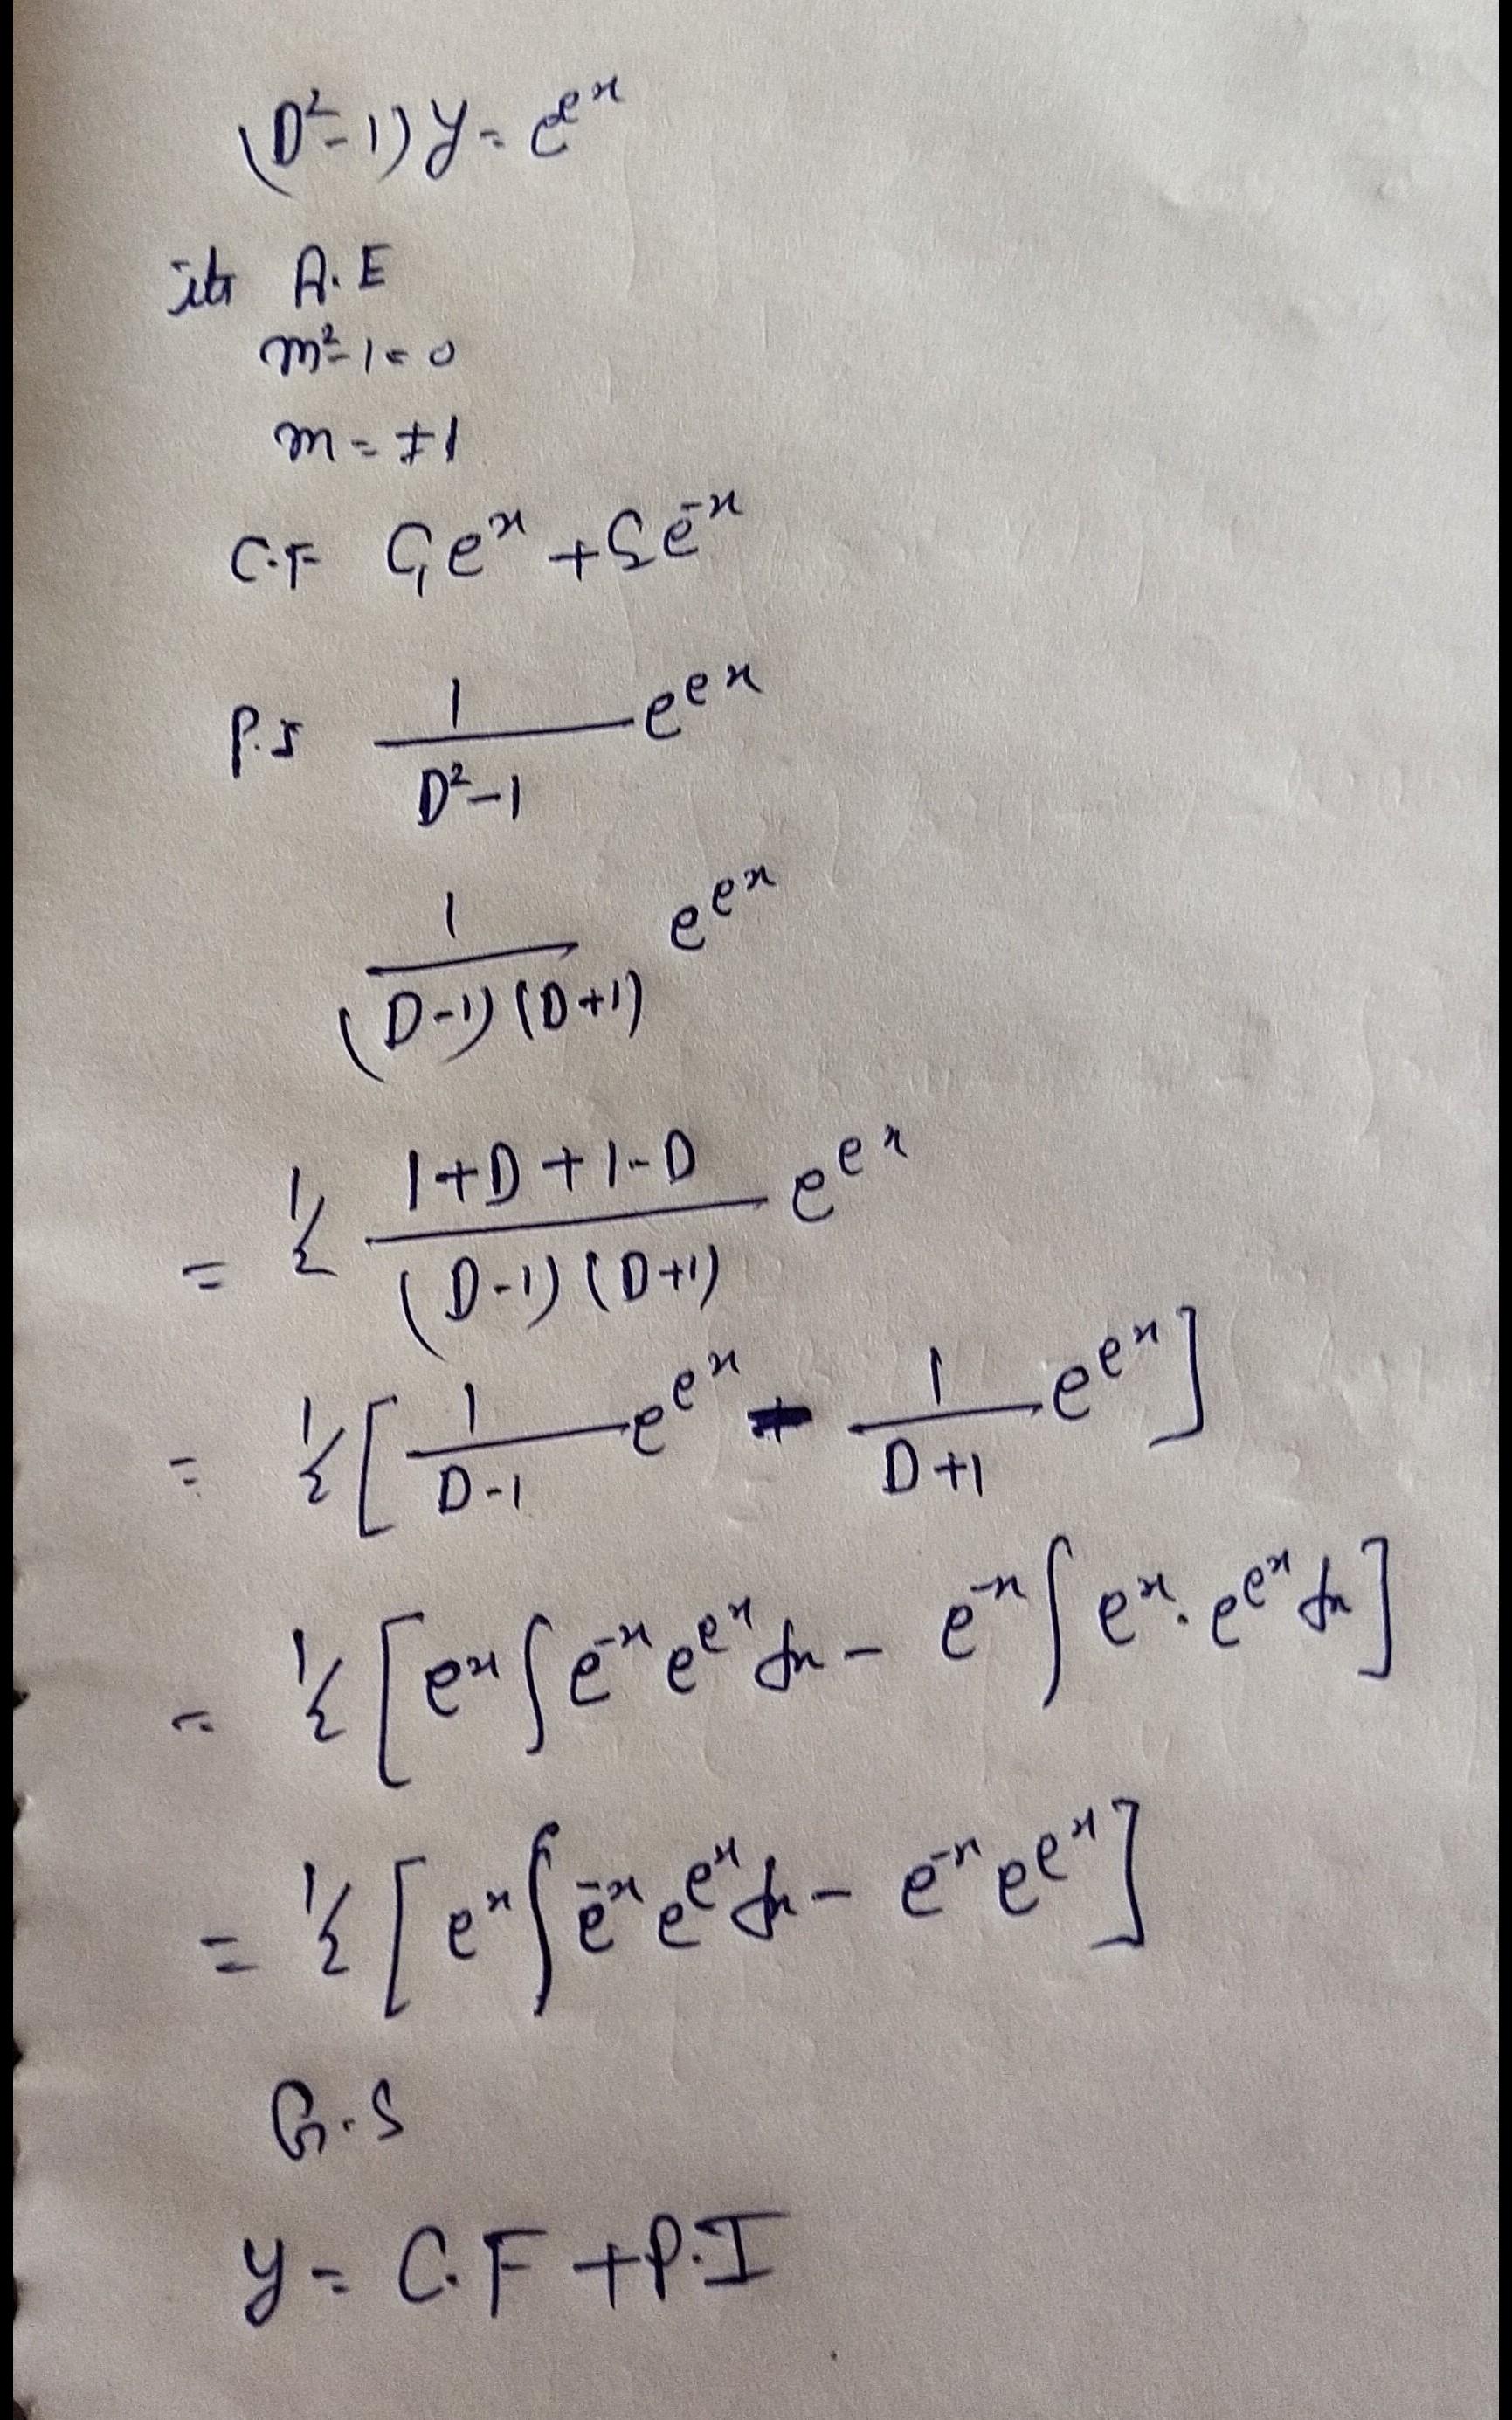 (D²-1)y = e^e^x
its A.E
m²-1=0
m = ±1
C.F C₁e^x + C₂e^-x
P.I 1/(D²-1) e^e^x
1/((D-1)(D+1)) e^e^x
= 1/2 (1+D+1-D)/((D-1)(D+1)) e^e^x
= 1/2 [1/(D-1) e^e^x - 1/(D+1) e^e^x]
= 1/2 [e^x ∫ e^-x e^e^x dx - e^-x ∫ e^x . e^e^x dx]
= 1/2 [e^x ∫ e^-x e^e^x dx - e^-x e^e^x]
G.S
y = C.F + P.I